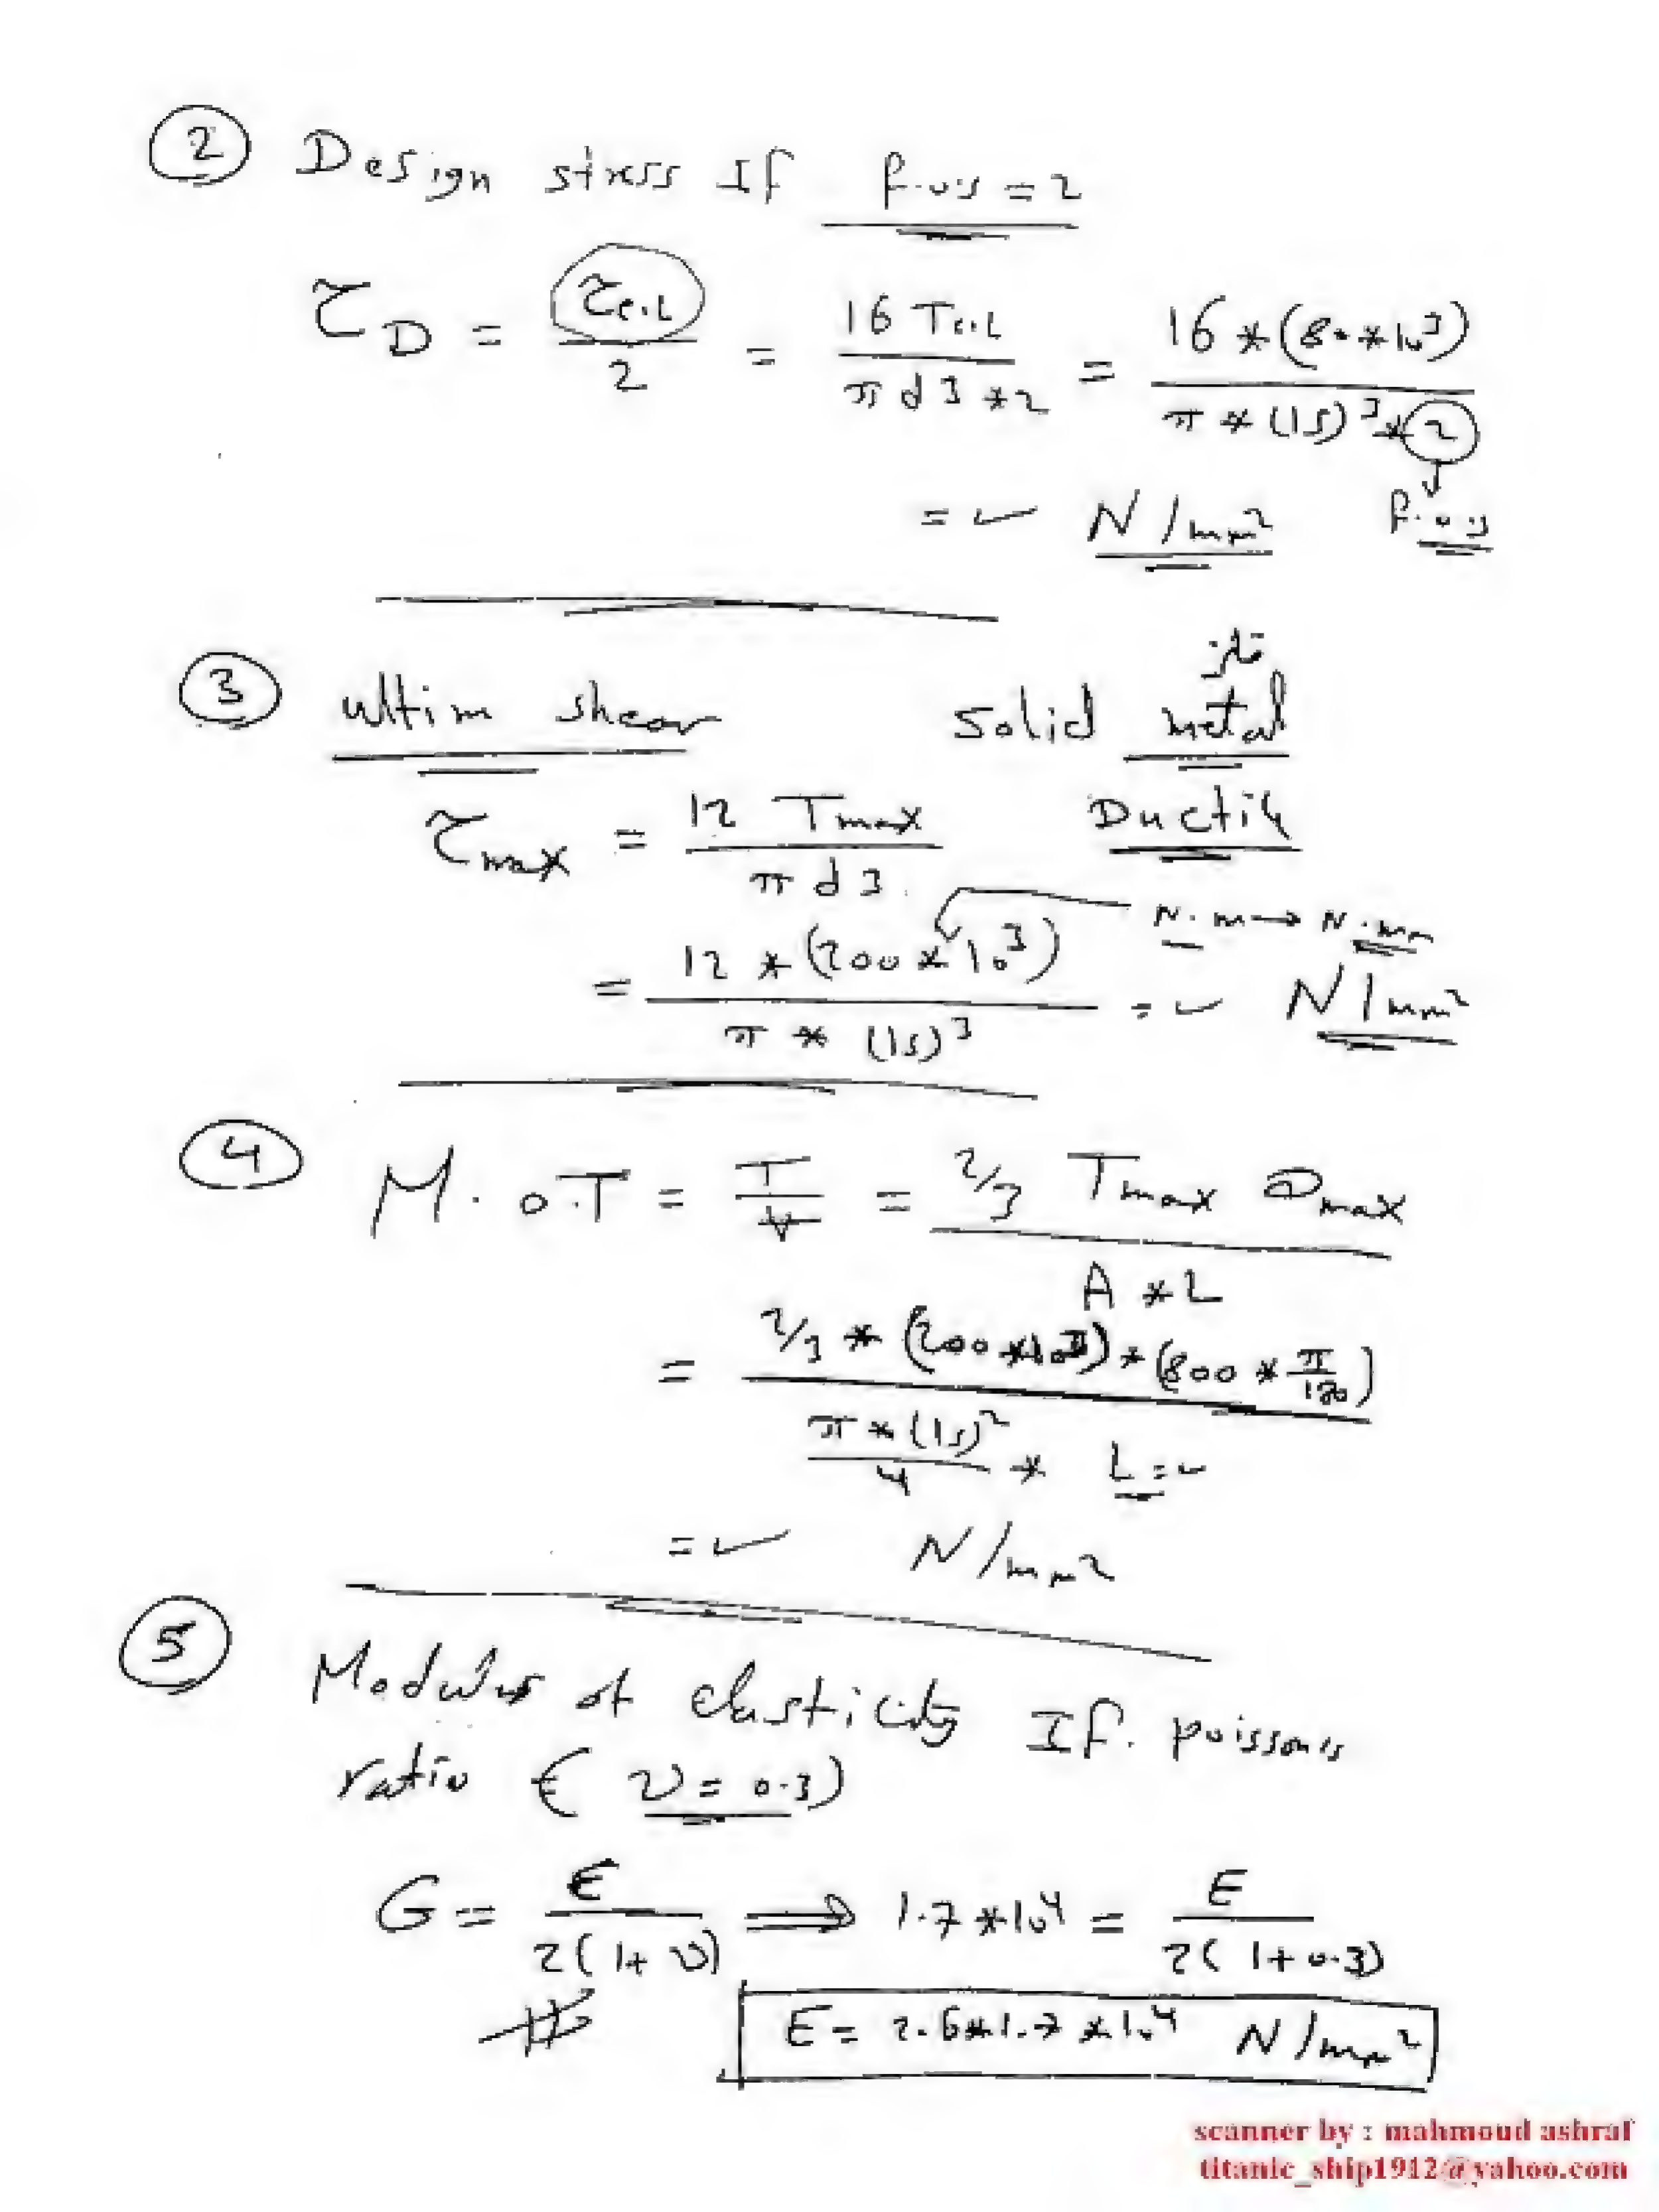 ② Design stress If f.o.s = 2
τ_D = τ_e.L / 2 = 16 T_e.L / π d3 * 2 = 16 * (80 * 10³) / π * (15)³ * 2
= ✓ N/mm² f.o.s
فلز
③ ultim shear solid metal
τ_max = 12 T_max / π d3 Ductile
N.m → N.mm
= 12 * (200 * 10³) / π * (15)³ = ✓ N/mm²
④ M.o.T = T / V = 2/3 T_max θ_max / A * L
= 2/3 * (200 * 10³) * (800 * π/180) / π * (15)²/4 * L = ✓
= ✓ N/mm²
⑤ Modulus of elasticity If. poisson's
ratio ( ν = 0.3)
G = E / 2(1 + ν) ⟹ 1.7 * 10⁴ = E / 2(1 + 0.3)
E = 2.6 * 1.7 * 10⁴ N/mm²
scanner by : mahmoud ashraf
titanic_ship1912@yahoo.com